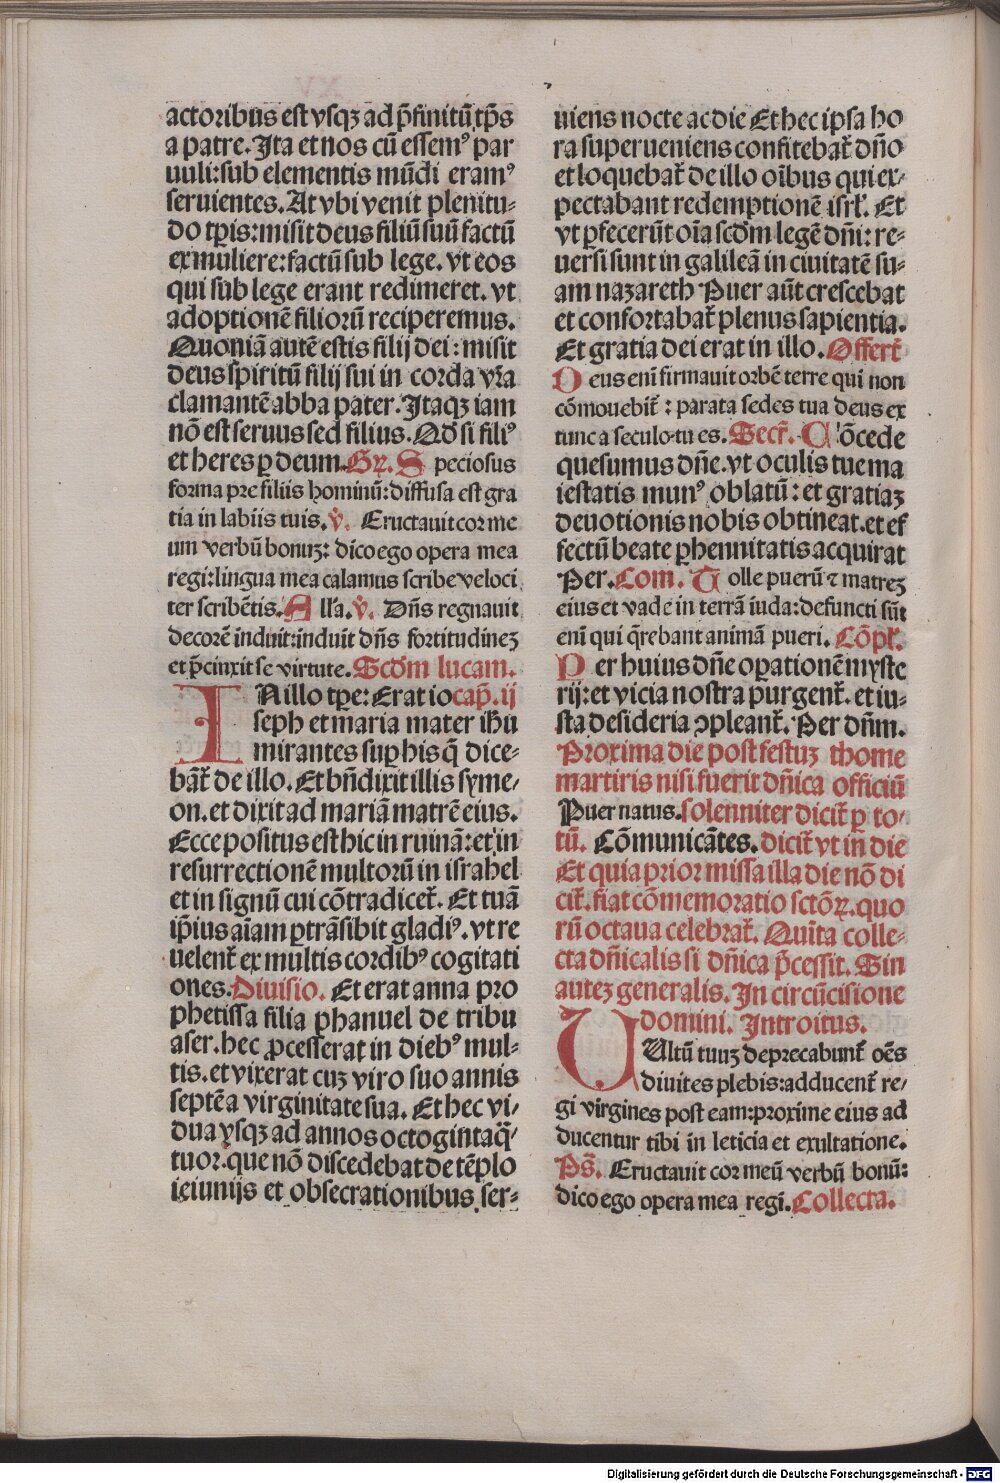 actoribus est vsqꝫ ad p̄finitū tp̄s
a patre. Ita et nos cū essemꝰ par
uuli: sub elementis mūdi eramꝰ
seruientes. At vbi venit plenitu-
do tp̄is: misit deus filiū suū factū
ex muliere: factū sub lege. vt eos
qui sub lege erant redimeret. vt
adoptionē filiorū reciperemus.
Quoniā autē estis filij dei: misit
deus spiritū filij sui in corda vr̄a
clamantē abba pater. Itaqꝫ iam
nō est seruus sed filius. Qd̓ si filiꝰ
et heres ꝑ deum. Gr̄. Speciosus
forma pre filiis hominū: diffusa est gra
tia in labiis tuis. v̄. Eructauit cor me
um verbū bonuꝫ: dico ego opera mea
regi: lingua mea calamus scribe veloci
ter scribētis. Alla. v̄. Dn̄s regnauit
decorē induit: induit dn̄s fortitudineꝫ
et p̄cinxit se virtute. Scd̓m lucam.
IN illo tꝑe: Erat io cap̄. ij
seph et maria mater ihu
mirantes suꝑ his q̄ dice-
bāt̄ de illo. Et bn̄dixit illis syme-
on. et dixit ad mariā matrē eius.
Ecce positus est hic in ruinā: et in
resurrectionē multorū in israhel
et in signū cui cōtradicet̄. Et tuā
ip̄ius aīam ꝑtrāsibit gladiꝰ. vt re
uelent̄ ex multis cordibꝰ cogitati
ones. Diuisio. Et erat anna pro
phetissa filia phanuel de tribu
aser. hec ꝓcesserat in diebꝰ mul-
tis. et vixerat cuꝫ viro suo annis
septē a virginitate sua. Et hec vi-
dua vsqꝫ ad annos octogintaq̄-
tuor. que nō discedebat de tēplo
ieiunijs et obsecrationibus ser-
uiens nocte ac die Et hec ipsa ho
ra superueniens confitebat̄ dn̄o
et loquebat̄ de illo oībus qui ex-
pectabant redemptionē isrl̄. Et
vt ꝑfecerūt oīa scd̓m legē dn̄i: re-
uersi sunt in galileā in ciuitatē su-
am nazareth Puer aūt crescebat
et confortabat̄ plenus sapientia.
Et gratia dei erat in illo. Offert̄
Deus eni firmauit orbē terre qui non
cōmouebit̄: parata sedes tua deus ex
tunc a seculo tu es. Secr̄. Cōcede
quesumus dn̄e. vt oculis tue ma
iestatis munꝰ oblatū: et gratiaꝫ
deuotionis nobis obtineat. et ef
fectū beate ꝑhennitatis acquirat
Per. Com. Tolle puerū ⁊ matreꝫ
eius et vade in terrā iuda: defuncti sūt
eni qui q̄rebant animā pueri. Cōpl̄.
Per huius dn̄e oꝑationē myste
rij: et vicia nostra purgent̄. et iu-
sta desideria ꝯpleant̄. Per dn̄m.
Proxima die post festuꝫ thome
martiris nisi fuerit dn̄ica officiū
Puer natus. solenniter dicit̄ ꝑ to-
tū. Cōmunicātes. dicit̄ vt in die
Et quia prior missa illa die nō di
cit̄. fiat cōmemoratio sctōꝝ. quo
rū octaua celebrat̄. Quīta colle-
cta dn̄icalis si dn̄ica p̄cessit. Sin
auteꝫ generalis. In circūcisione
domini. Introitus.
Vultū tuuꝫ deprecabunt̄ oēs
diuites plebis: adducent̄ re-
gi virgines post eam: proxime eius ad
ducentur tibi in leticia et exultatione.
Ps̄. Eructauit cor meū verbū bonū:
dico ego opera mea regi. Collecta.
Digitalisierung gefördert durch die Deutsche Forschungsgemeinschaft - DFG